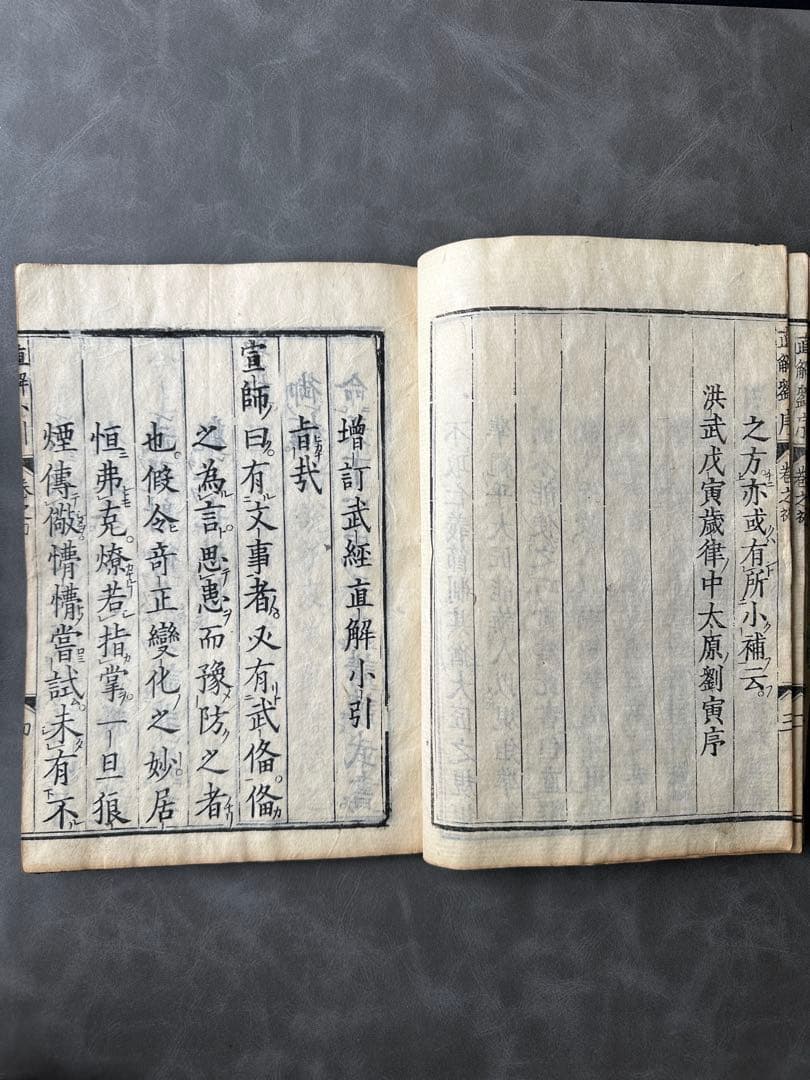 直解劉序
卷之首
三
之方亦或有所小補云
洪武戊寅歲律中太原劉寅序
增訂武經直解小引
旨哉
宣師曰有文事者必有武俻俻
之為言思患而豫防之者
也假令奇正變化之妙居
恒弗克燎若指掌一旦狼
煙傳儆懵懵嘗試未有不
直解小引
四